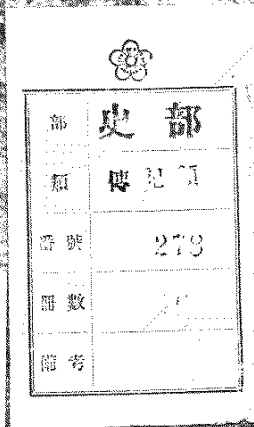 部 史部
類 傳記類
番號 278
冊數
備考